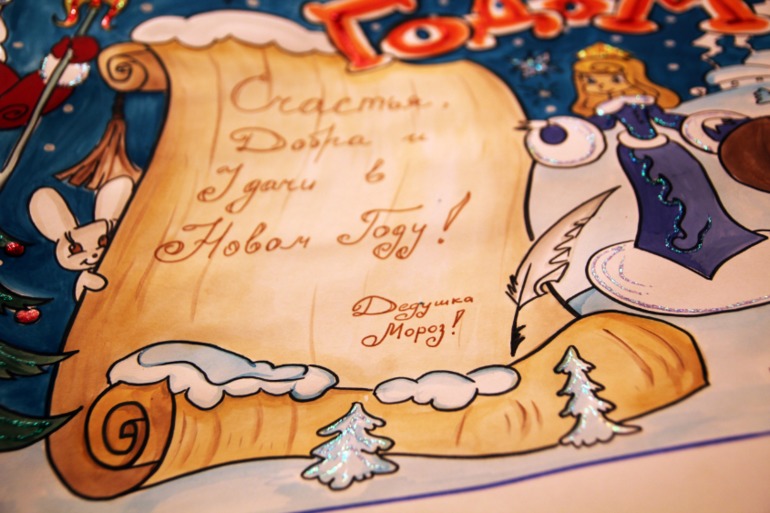 Годом
Счастья,
Добра и
Удачи в
Новом Году!
Дедушка
Мороз!